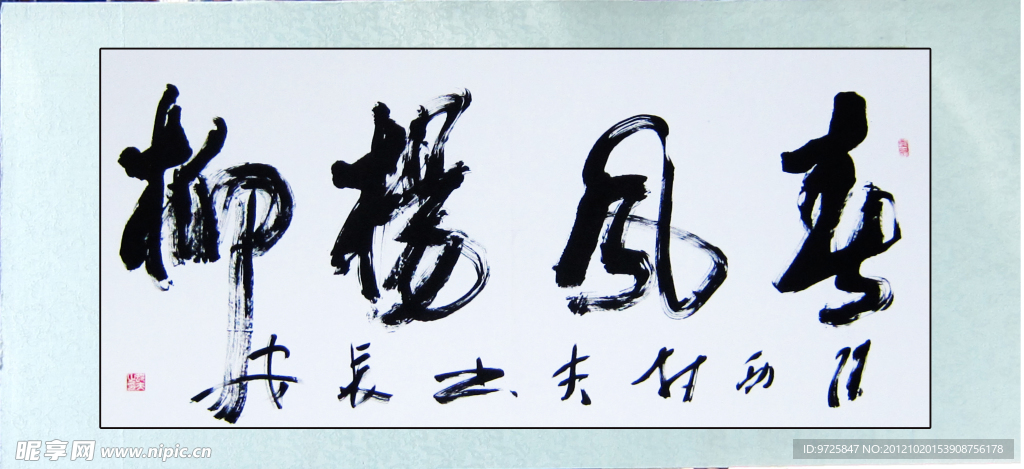 春風楊柳
陕西村夫书長安
昵享网 www.nipic.cn
ID:9725847 NO:20121020153908756178